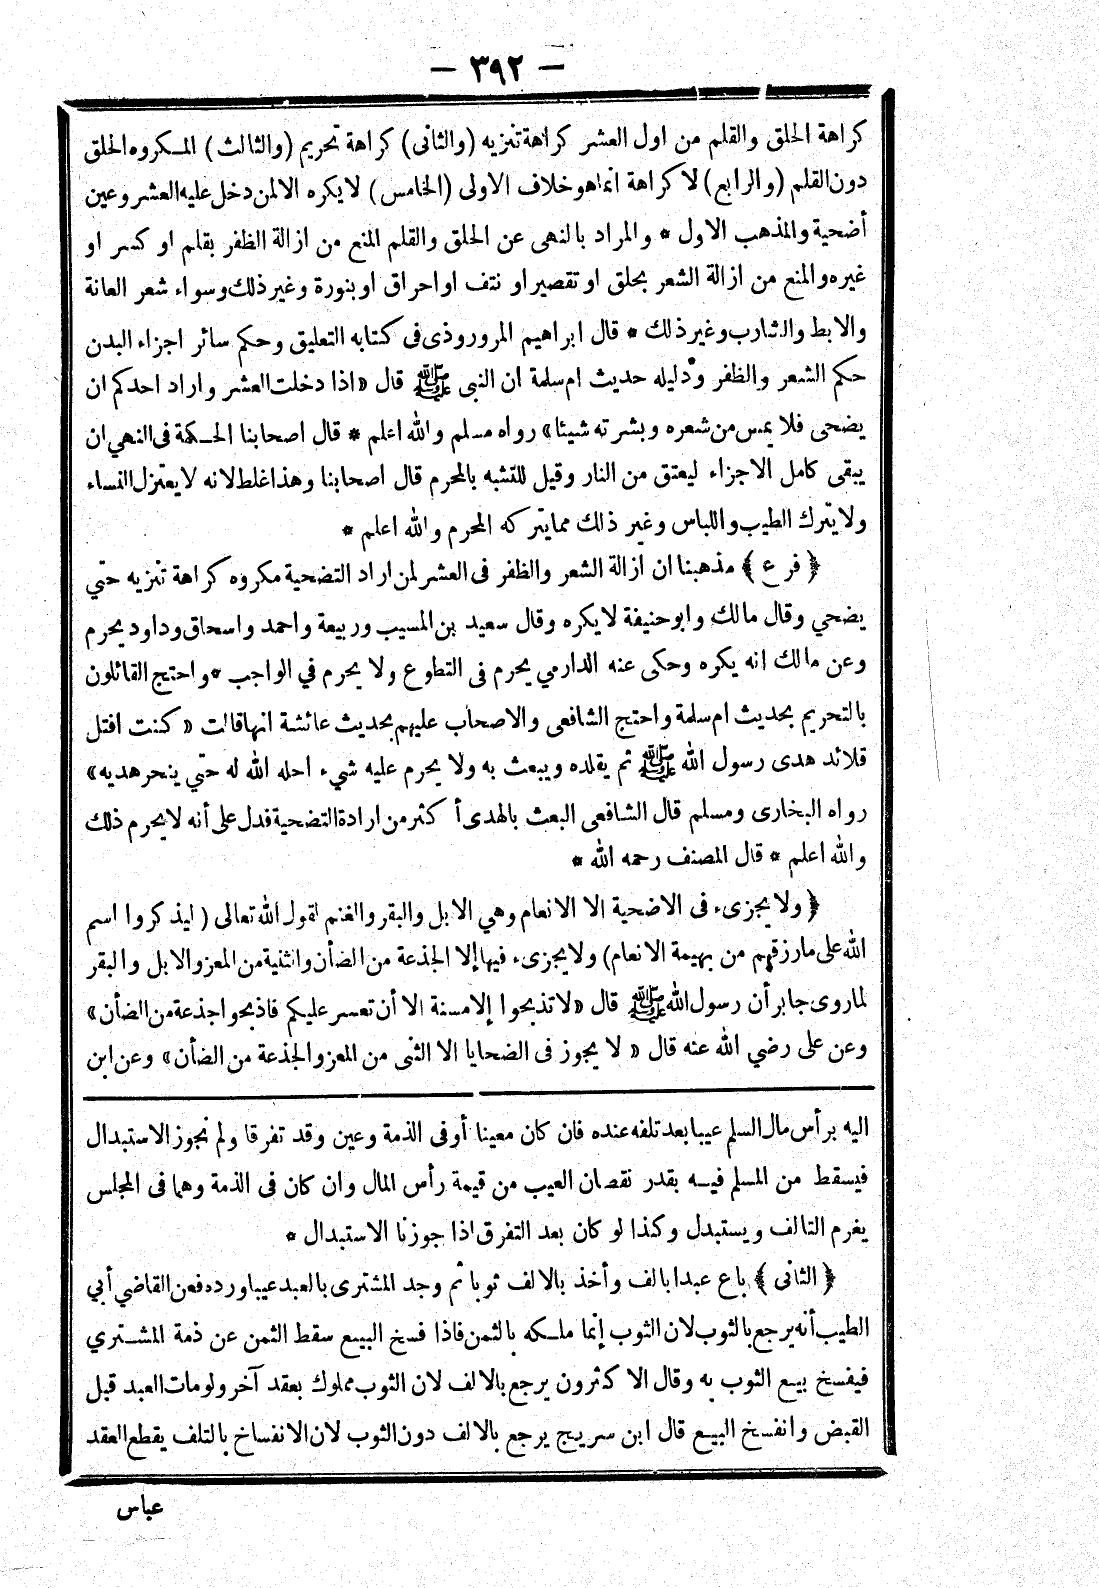 — ٣٩٢ —
كراهة الحلق والقلم من اول العشر كراهة تنزيه (والثانى) كراهة تحريم (والثالث) المكروه الحلق
دون القلم (والرابع) لا كراهة انما هو خلاف الاولى (الخامس) لا يكره الا لمن دخل عليه العشر وعين
أضحية والمذهب الاول * والمراد بالنهى عن الحلق والقلم المنع من ازالة الظفر بقلم او كسر او
غيره والمنع من ازالة الشعر بحلق او تقصير او نتف او احراق او بنورة وغير ذلك وسواء شعر العانة
والابط والشارب وغير ذلك * قال ابراهيم المروروذى فى كتابه التعليق وحكم سائر اجزاء البدن
حكم الشعر والظفر ودليله حديث ام سلمة ان النبى ﷺ قال «اذا دخلت العشر واراد احدكم ان
يضحى فلا يمس من شعره وبشرته شيئا» رواه مسلم والله اعلم * قال اصحابنا الحكمة فى النهي ان
يبقى كامل الاجزاء ليعتق من النار وقيل للتشبه بالمحرم قال اصحابنا وهذا غلط لانه لا يعتزل النساء
ولا يترك الطيب واللباس وغير ذلك مما يتركه المحرم والله اعلم *
﴿ فرع ﴾ مذهبنا ان ازالة الشعر والظفر فى العشر لمن اراد التضحية مكروه كراهة تنزيه حتي
يضحي وقال مالك وابو حنيفة لا يكره وقال سعيد بن المسيب وربيعة واحمد واسحاق وداود يحرم
وعن مالك انه يكره وحكى عنه الدارمي يحرم فى التطوع ولا يحرم في الواجب * واحتج القائلون
بالتحريم بحديث ام سلمة واحتج الشافعى والاصحاب عليهم بحديث عائشة انها قالت «كنت افتل
قلائد هدى رسول الله ﷺ ثم يقلده ويبعث به ولا يحرم عليه شيء احله الله له حتي ينحر هديه»
رواه البخارى ومسلم قال الشافعى البعث بالهدى أكثر من ارادة التضحية فدل على أنه لا يحرم ذلك
والله اعلم * قال المصنف رحمه الله *
﴿ ولا يجزىء فى الاضحية إلا الانعام وهي الابل والبقر والغنم لقول الله تعالى (ليذكروا اسم
الله على ما رزقهم من بهيمة الانعام) ولا يجزىء فيها إلا الجذعة من الضأن والثنية من المعز والابل والبقر
لما روى جابر أن رسول الله ﷺ قال «لا تذبحوا إلا مسنة الا أن تعسر عليكم فاذبحوا جذعة من الضأن»
وعن على رضي الله عنه قال « لا يجوز فى الضحايا الا الثنى من المعز والجذعة من الضأن» وعن ابن
اليه برأس مال السلم عيبا بعد تلفه عنده فان كان معينا أو فى الذمة وعين وقد تفرقا ولم نجوز الاستبدال
فيسقط من المسلم فيه بقدر نقصان العيب من قيمة رأس المال وان كان فى الذمة وهما فى المجلس
يغرم التالف ويستبدل وكذا لو كان بعد التفرق اذا جوزنا الاستبدال *
﴿ الثانى ﴾ باع عبدا بالف وأخذ بالالف ثوبا ثم وجد المشترى بالعبد عيبا ورده فعن القاضي أبي
الطيب أنه يرجع بالثوب لان الثوب إنما ملكه بالثمن فاذا فسخ البيع سقط الثمن عن ذمة المشتري
فيفسخ بيع الثوب به وقال الاكثرون يرجع بالالف لان الثوب مملوك بعقد آخر ولو مات العبد قبل
القبض وانفسخ البيع قال ابن سريج يرجع بالالف دون الثوب لان الانفساخ بالتلف يقطع العقد
عباس